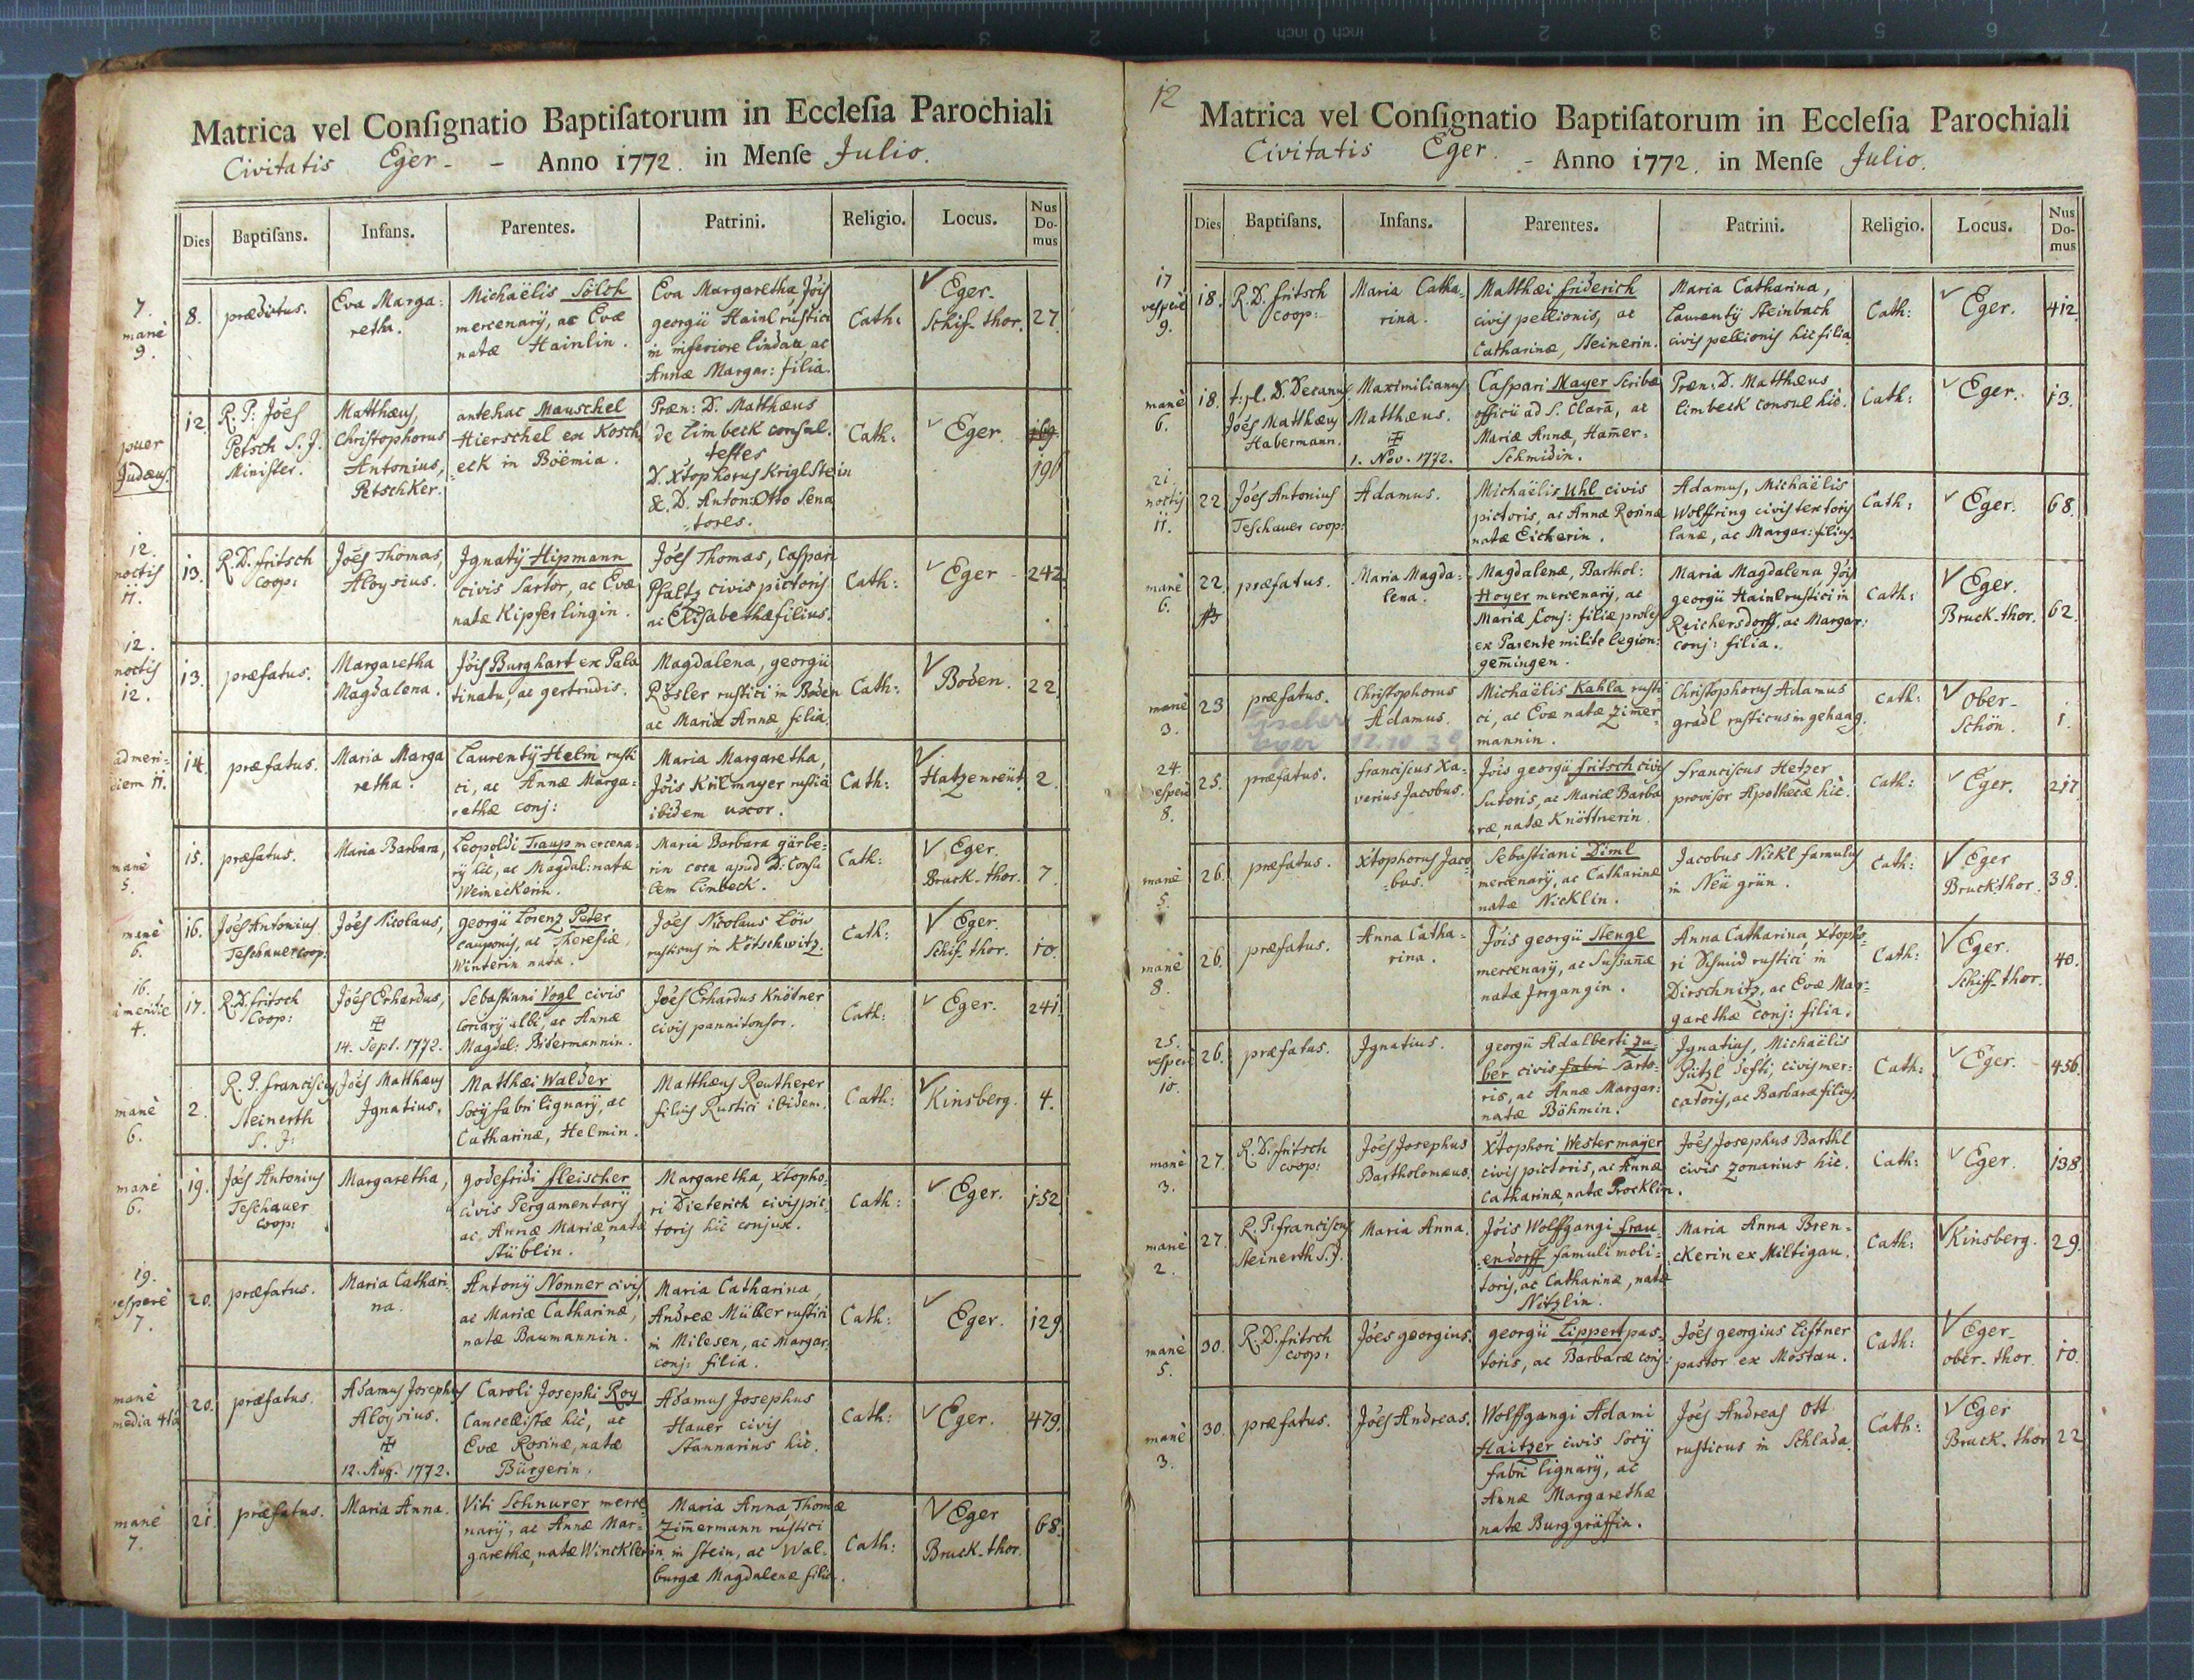 Matrica vel Conſignatio Baptiſatorum in Eccleſia Parochiali
Civitatis Eger - - Anno 1772. in Menſe Julio.
Dies Baptiſans. Infans. Parentes. Patrini. Religio. Locus. Nus Do- mus
7. manè 9.
8.
prædictus.
Eva Marga:
retha.
Michaëlis Sölch
mercenarÿ, ac Evæ
natæ Hainlin.
Eva Margaretha, Jöis
georgii Hainl rustici
in inferiore lindau ac
Annæ Margar: filia.
Cath:
Eger.
Schif-thor.
27.
puer
Judæus.
12.
R. P. Jöes
Petsch S. J.
Minister.
Matthæus,
Christophorus
Antonius,
Petschker.
antehac Mauschel
Hierschel ex Kosch
eck in Böemia.
Præn: D. Matthæus
de Limbeck consul.
testes
D. Xtophorus Kriglstein
&. D. Anton: Otto Sena
tores.
Cath:
Eger.
169
196
12.
noctis
11.
13.
R. D. fritsch
coop:
Jöes Thomas,
Aloysius.
Jgnatÿ Hipmann
civis Sartor, ac Evæ
natæ Kipferlingin.
Jöes Thomas, Caspari
Pfaltz civis pictoris
ac Elisabethæ filius.
Cath:
Eger
242
12.
noctis
12.
13.
præfatus.
Margaretha
Magdalena.
Jöis Burghart ex Pala
tinatu, ac gertrudis.
Magdalena, georgii
Rösler rustici in Boden
ac Mariæ Annæ filia.
Cath:
Boden.
22
ad meri-
diem 11.
14.
præfatus.
Maria Marga
retha.
Laurentÿ Helm rusti
ci, ac Annæ Marga-
rethæ conj:
Maria Margaretha,
Jöis Krilmayer rustici
ibidem uxor.
Cath:
Hatzenreüt.
2.
manè
5.
15.
præfatus.
Maria Barbara,
Leopoldi Traup mercena-
rÿ hic, ac Magdal: natæ
Weineckerin.
Maria Barbara gärbe-
rin coca apud D: Consu
lem Limbeck.
Cath:
Eger.
Bruck-thor.
7.
manè
6.
16.
Jöes Antonius
Teschauer coop:
Jöes Nicolaus,
georgii Lorenz Peter
Cauponis, ac Theresiæ,
Winterin natæ.
Jöes Nicolaus Löw
rusticus in Kötschwitz.
Cath:
Eger.
Schif-thor.
10.
16.
à meridie
4.
17.
R. D. fritsch
Coop:
Jöes Erhardus,
14. Sept. 1772.
Sebastiani Vogl civis
Coriarÿ albi, ac Annæ
Magdal: Bidermannin.
Jöes Erhardus Knötner
civis pannitonsor.
Cath:
Eger.
241.
manè
6.
2.
R. P. franciscus
Steinerth
S. J.
Jöes Matthæus
Jgnatius.
Matthæi Walder
Socÿ fabri lignarÿ, ac
Catharinæ, Helmin.
Matthæus Reutherer
filius Rustici ibidem.
Cath:
Kinsberg.
4.
manè
6.
19.
Jöes Antonius
Teschauer
coop:
Margaretha,
godefridi fleischer
civis Pergamentarÿ
ac Annæ Mariæ, natæ
Stüblin.
Margaretha, Xtopho-
ri Dieterich civis pic-
toris hic conjux.
Cath:
Eger.
152
19.
vesperè
7.
20.
præfatus.
Maria Cathari
na.
Antonÿ Nonner civis,
ac Mariæ Catharinæ,
natæ Baumannin.
Maria Catharina,
Andreæ Müller rustici
in Milesen, ac Margar:
conj: filia.
Cath:
Eger.
129.
manè
media 4ta
20.
præfatus.
Adamus Josephus
Aloysius.
12. Aug. 1772.
Caroli Josephi Roy
Cancellistæ hic, ac
Evæ Rosinæ, natæ
Bürgerin.
Adamus Josephus
Hauer civis
Stannarius hic.
Cath:
Eger.
479.
manè
7.
21.
præfatus.
Maria Anna.
Viti Schnurer merce
narÿ, ac Annæ Mar-
garethæ, natæ Wincklerin
Maria Anna, Thomæ
Zimermann rustici
in Stein, ac Wal-
burgæ Magdalenæ filia.
Cath:
Eger
Bruck-thor.
68.
12
Matrica vel Conſignatio Baptiſatorum in Eccleſia Parochiali
Civitatis Eger. - Anno 1772. in Menſe Julio.
Dies Baptiſans. Infans. Parentes. Patrini. Religio. Locus. Nus Do- mus
17
vesperè
9.
18.
R. D. fritsch
coop:
Maria Catha-
rina.
Matthæi friderich
civis pellionis, ac
Catharinæ, Steinerin.
Maria Catharina,
Laurentÿ Steinbach
civis pellionis hic filia
Cath:
Eger.
412.
manè
6.
18.
t: pl. D. Decanus
Jöes Matthæus
Habermann.
Maximilianus
Matthæus.
1. Nov. 1772.
Caspari Mayer Scribæ
officii ad S. Claram, ac
Mariæ Annæ, Hamer-
Schmidin.
Præn: D. Matthæus
Limbeck consul hic.
Cath:
Eger.
13.
21.
noctis
11.
22
Jöes Antonius
Teschauer coop:
Adamus.
Michaëlis Uhl civis
pictoris, ac Annæ Rosinæ
natæ Eickerin.
Adamus, Michaëlis
Wolffring civis textoris
lanæ, ac Margar: filius.
Cath:
Eger.
68.
manè
6.
22.
præfatus.
Maria Magda-
lena.
Magdalenæ, Barthol:
Hoyer mercenarÿ, ac
Mariæ Conj: filiæ proles
ex Parente milite legion:
gemingen.
Maria Magdalena Jöis
georgii Hainl rustici in
Reichersdorff, ac Margar:
conj: filia.
Cath:
Eger.
Bruck-thor.
62.
manè
3.
23
præfatus.
Christophorus
Adamus.
Michaëlis Kahla rusti
ci, ac Evæ natæ Zimer-
mannin.
Christophorus Adamus
grädl rusticus in gehaag.
Cath:
Ober-
Schön.
1.
24.
vesperè
8.
25.
præfatus.
franciscus Xa-
verius Jacobus.
Jöis georgii fritsch civis
Sutoris, ac Mariæ Barba
ræ, natæ Knöttnerin.
franciscus Hetzer
provisor Apothecæ hic.
Cath:
Eger.
217.
manè
5.
26.
præfatus.
Xtophorus Jaco
bus.
Sebastiani Diml
mercenarÿ, ac Catharinæ
natæ Nicklin.
Jacobus Nickl famulus
in Neügrün.
Cath:
Eger
Bruckthor.
38.
manè
8.
26.
præfatus.
Anna Catha-
rina.
Jöis georgii Stengl
mercenarÿ, ac Susanæ
natæ Jrrgangin.
Anna Catharina, Xtopho-
ri Schmid rustici in
Dirschnitz, ac Evæ Mar-
garethæ conj: filia.
Cath:
Eger.
Schiff-thor.
40.
25.
vesperè
10.
26.
præfatus.
Jgnatius.
georgii Adalberti Zu-
ber civis fabri Sarto-
ris, ac Annæ Margar:
natæ Böhmin.
Jgnatius, Michaëlis
Pützl defti, civis mer-
catoris, ac Barbaræ filius.
Cath:
Eger.
456.
manè
3.
27.
R. D. fritsch
coop:
Jöes Josephus
Bartholomæus.
Xtophori Westermayer
civis pictoris, ac Annæ
Catharinæ, natæ Procklin.
Jöes Josephus Barthl
civis zonarius hic.
Cath:
Eger.
138.
manè
2.
27.
R. P. franciscus
Steinerth S. J.
Maria Anna.
Jöis Wolffgangi frau
endorff famuli moli-
toris, ac Catharinæ, natæ
Nitzlin.
Maria Anna Bren-
ckerin ex Miltigau.
Cath:
Kinsberg.
29.
manè
5.
30.
R. D. fritsch
coop:
Jöes georgius.
georgii Lippert pas-
toris, ac Barbaræ conj:
Jöes georgius Liftner
pastor ex Mostau.
Cath:
Eger-
ober-thor.
10.
manè
3.
30.
præfatus.
Jöes Andreas.
Wolffgangi Adami
Haitzer civis Socÿ
fabri lignarÿ, ac
Annæ Margarethæ
natæ Burggräffin.
Jöes Andreas Ott
rusticus in Schlada.
Cath:
Eger
Bruck-thor
22